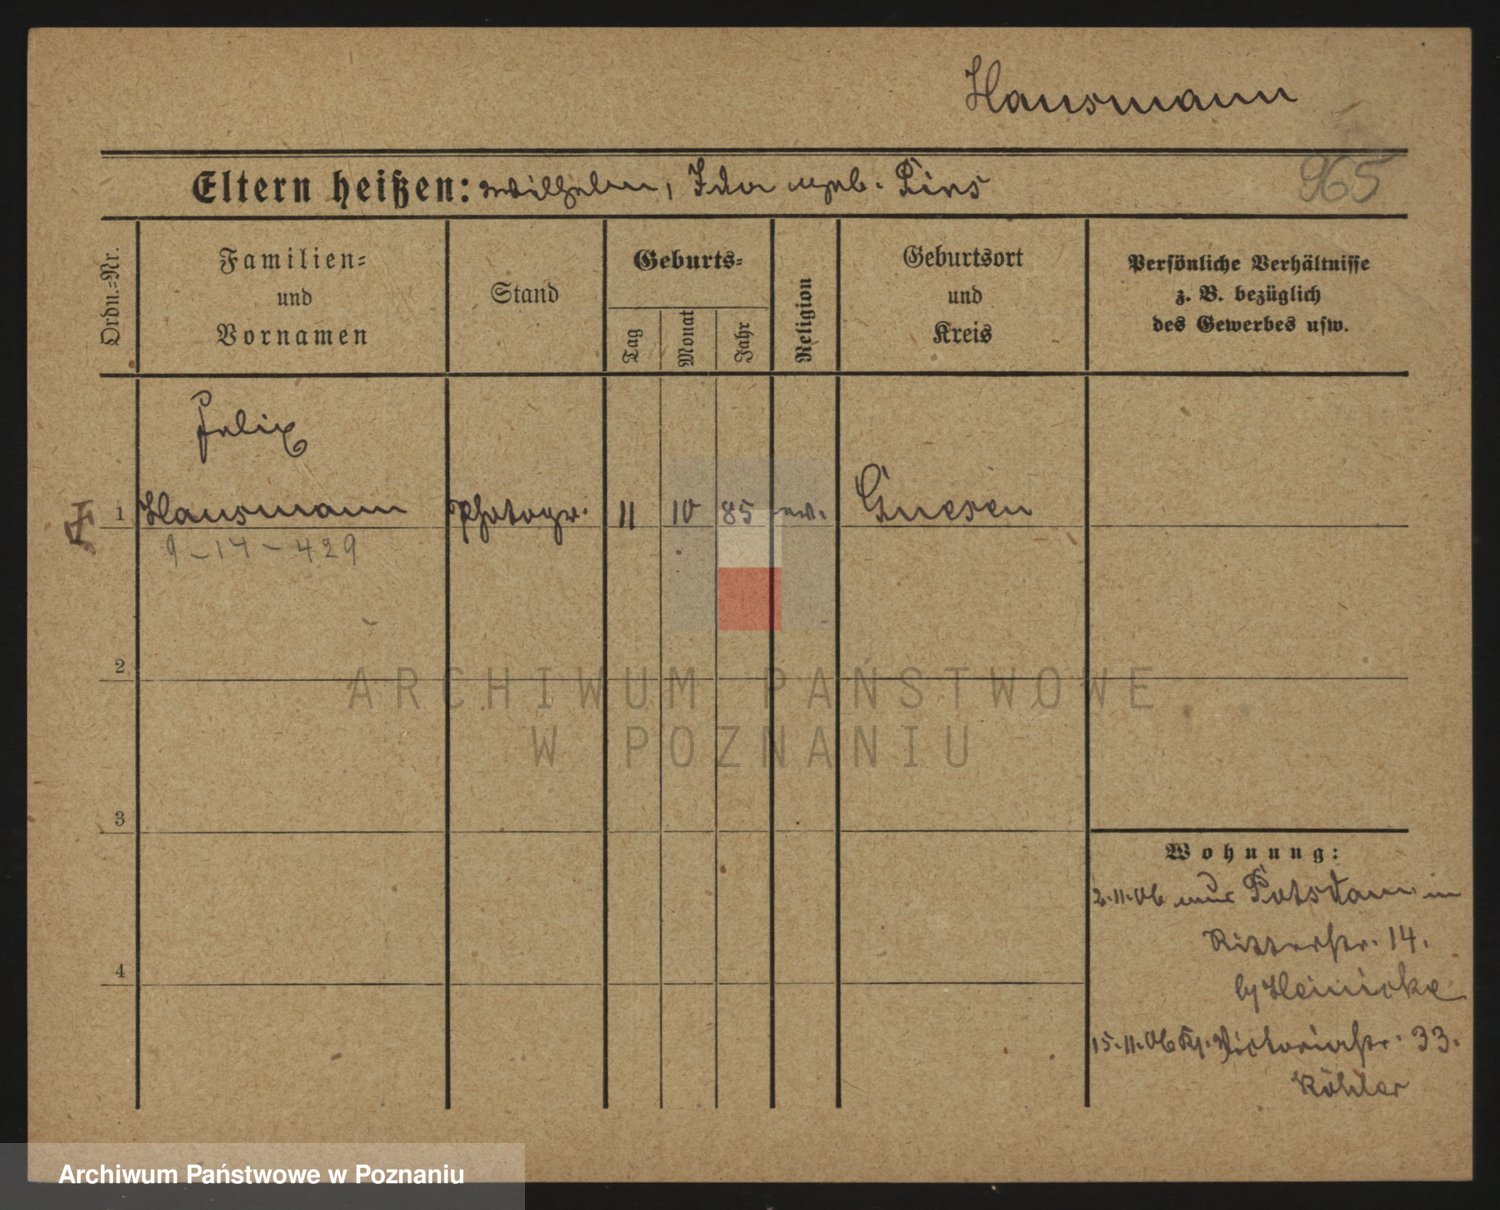 Hausmann
965
Eltern heißen: Wilhelm, Ida geb. Pins
Ordn.=Nr.
Familien=
und
Vornamen
Stand
Geburts=
Tag
Monat
Jahr
Religion
Geburtsort
und
Kreis
Persönliche Verhältnisse
z. B. bezüglich
des Gewerbes usw.
Felix
1 Hausmann Photogr. 11 10 85 ev. Gnesen
9-14-429
2
ARCHIWUM PAŃSTWOWE
W POZNANIU
3
Wohnung:
2.11.06 aus Potsdam in
Ritterstr. 14.
4
b/Heinicke
15.11.06 Victoriastr. 33.
Köhler
Archiwum Państwowe w Poznaniu